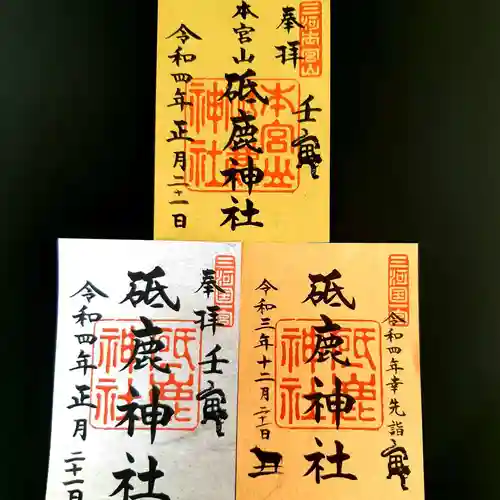 三河本宮山
奉拝
壬寅
本宮山
砥鹿神社
令和四年正月二十一日
三河国
奉拝 壬寅
砥鹿神社
令和四年正月二十一日
三河国
令和四年幸先詣 寅
砥鹿神社
令和三年十二月二十日 丑
本宮山
神社
砥鹿
神社
砥鹿
神社